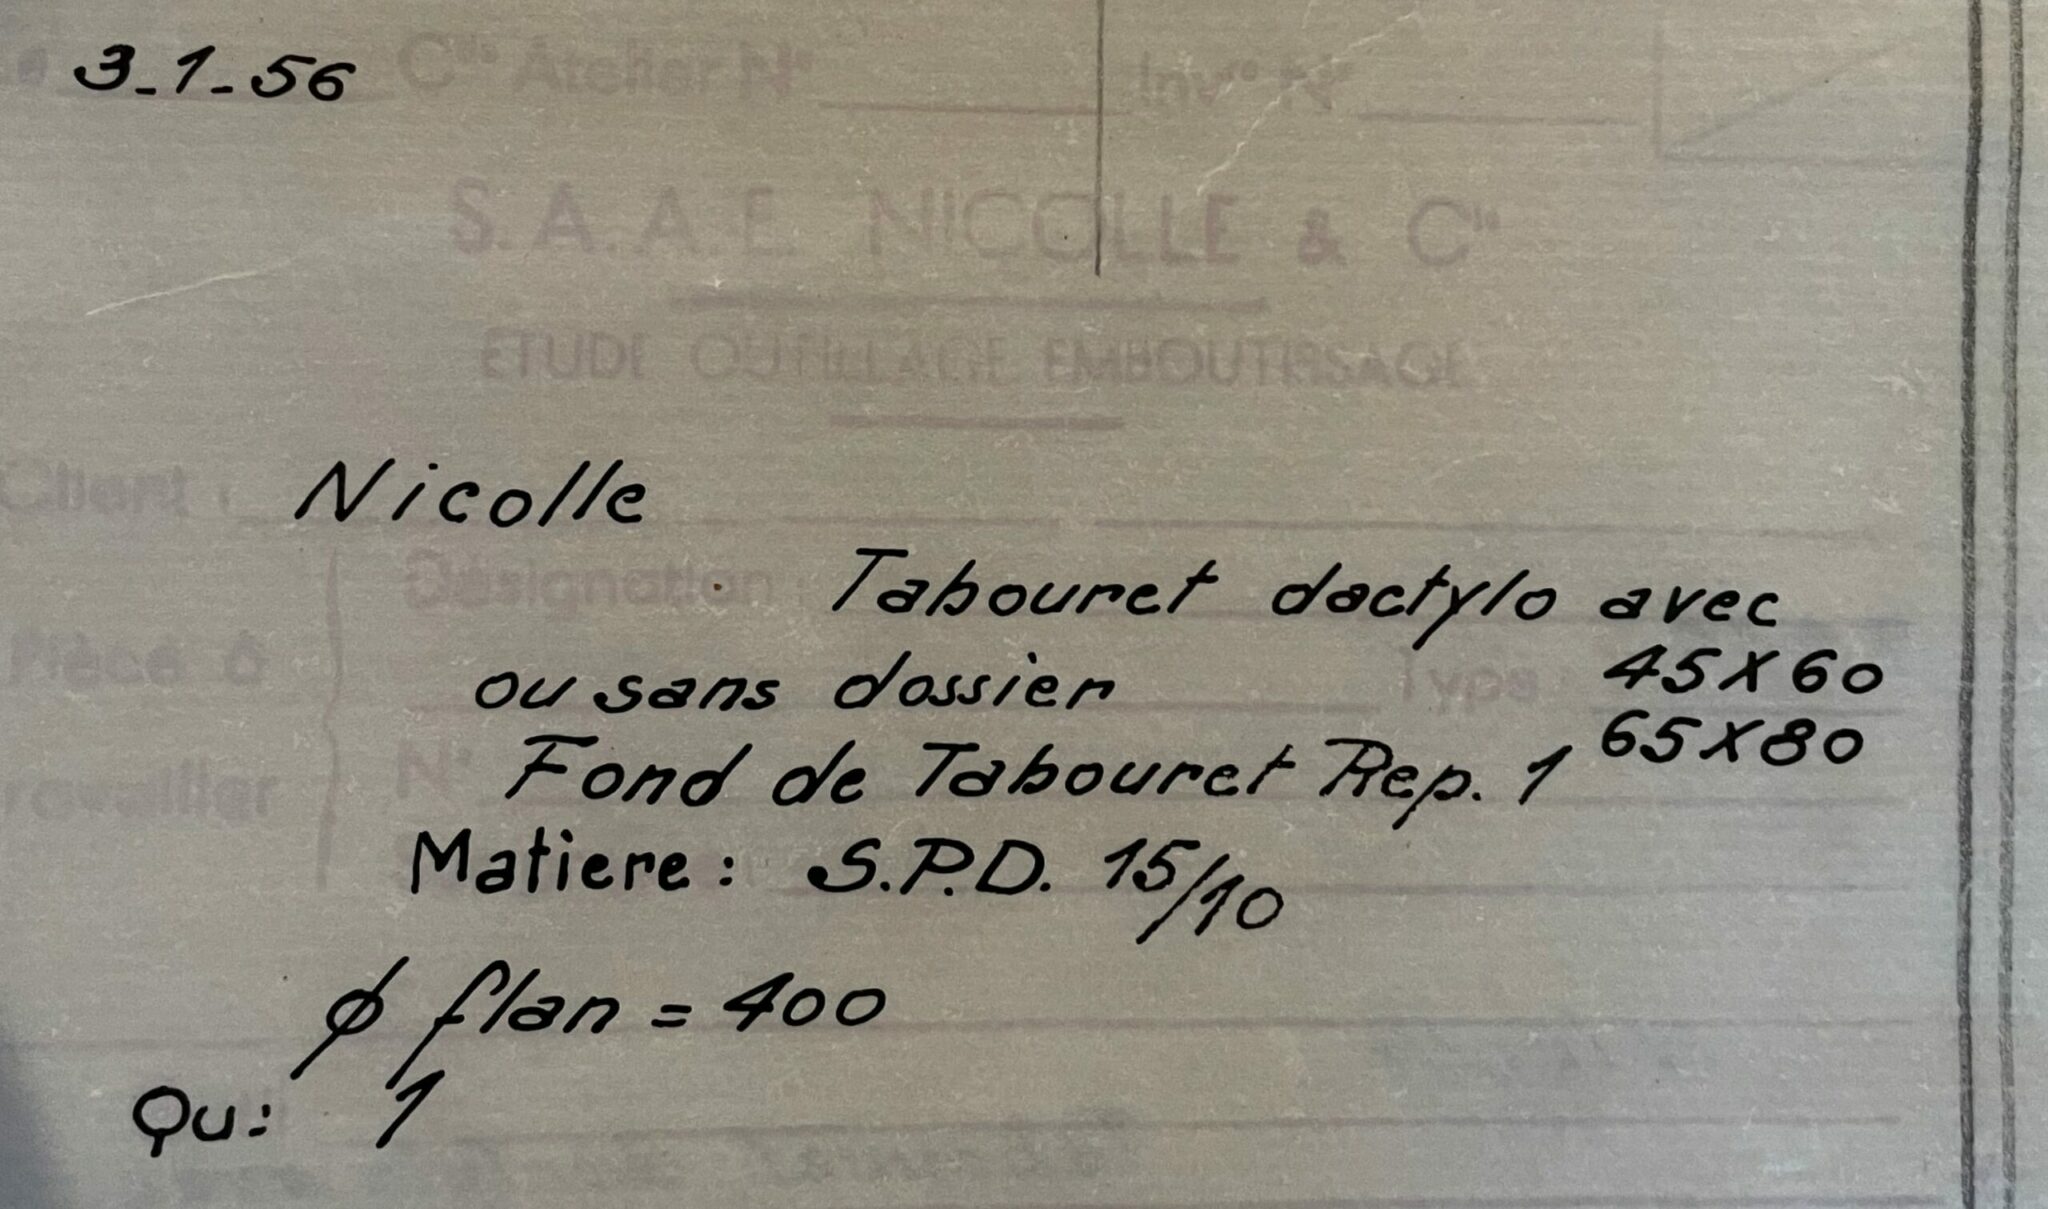 3_1_56 Cie Atelier N° Invre N°
S.A.A.E. NICOLLE & Cie
ETUDE OUTILLAGE EMBOUTISSAGE
Client : Nicolle
Désignation : Tabouret dactylo avec
Pièce à ou sans dossier Type 45X60
65X80
travailler N° Fond de Tabouret Rep. 1
Matiere : S.P.D. 15/10
ϕ flan = 400
Qu: 1